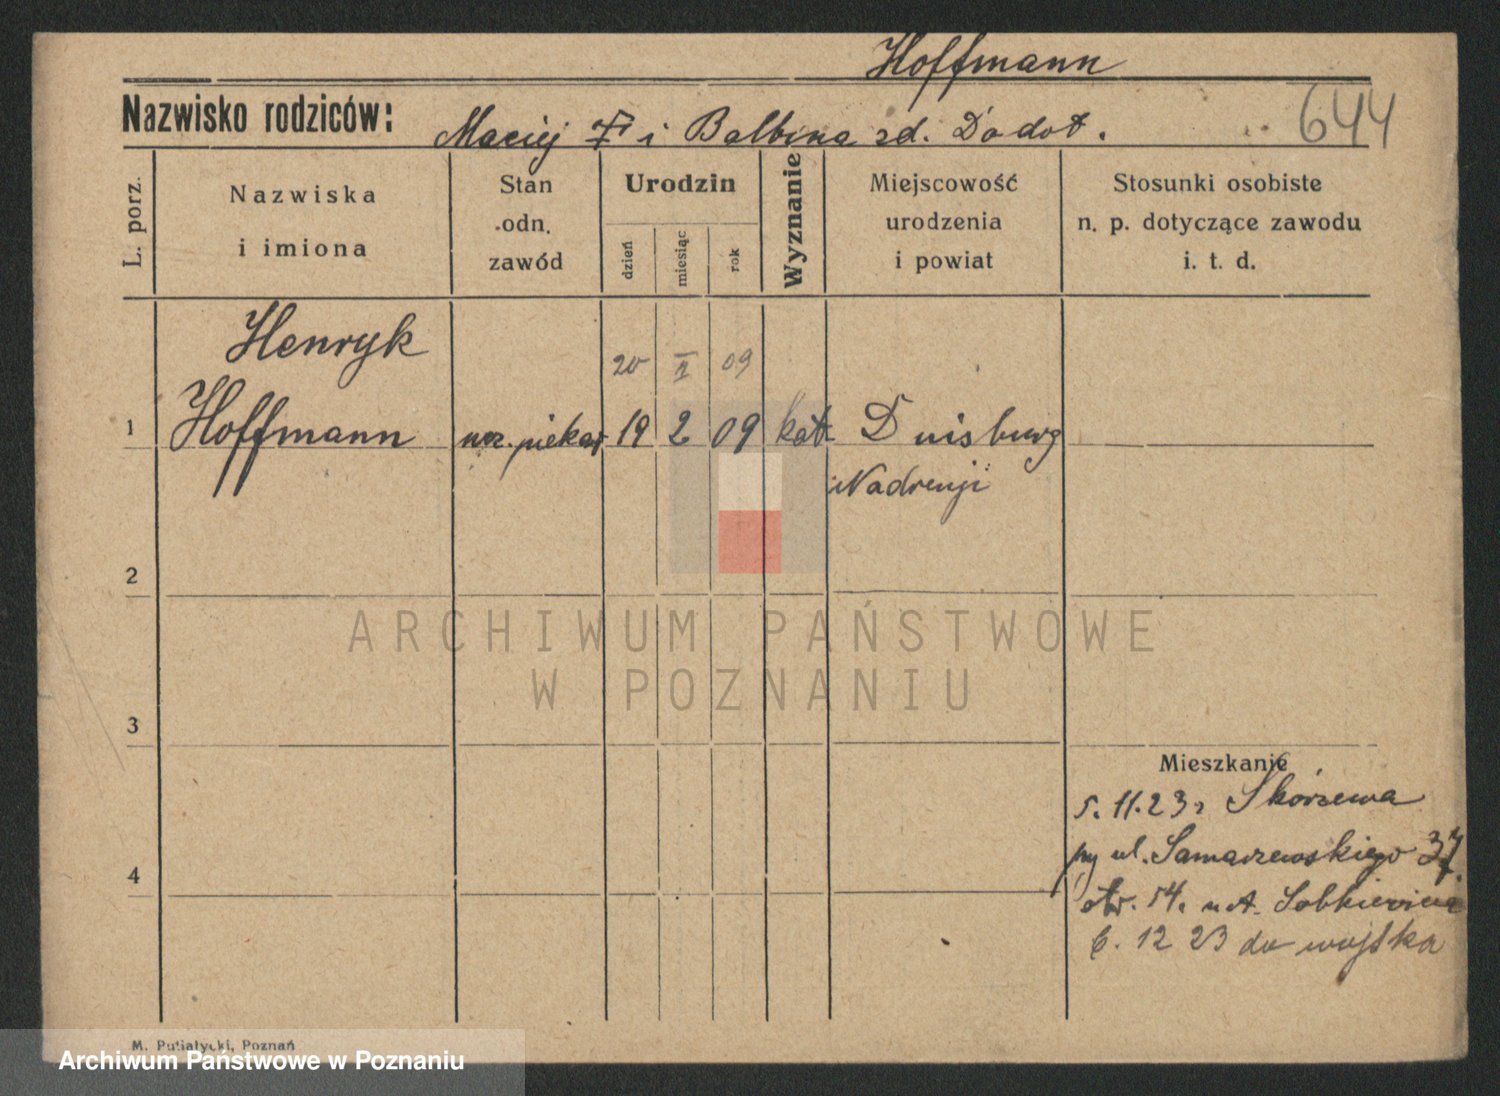 Hoffmann
Nazwisko rodziców:
Maciej i Balbina zd. Dodot.
644
L. porz.
Nazwiska
i imiona
Stan
odn.
zawód
Urodzin
dzień
miesiąc
rok
Wyznanie
Miejscowość
urodzenia
i powiat
Stosunki osobiste
n. p. dotyczące zawodu
i. t. d.
Henryk
20 II 09
1 Hoffmann ucz. piekar 19 2 09 kat Duisburg
Nadrenji
2
3
4
Mieszkanie
5. 11. 23 z Skórzewa
ul. Samarzewskiego 37
54. u A.
6. 12 23 do wojska
ARCHIWUM PAŃSTWOWE
W POZNANIU
M. Putiatycki, Poznań
Archiwum Państwowe w Poznaniu